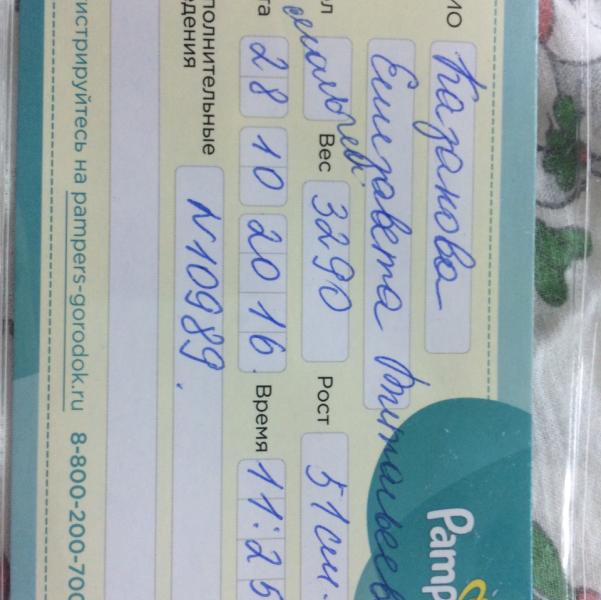 Pamp
ИО Казакова
Елизавета Витальевн
ол мальчев. Вес 3290 Рост 51 см.
та 28 10 2016. Время 11:25
полнительные
дения N10989.
истрируйтесь на pampers-gorodok.ru 8-800-200-700